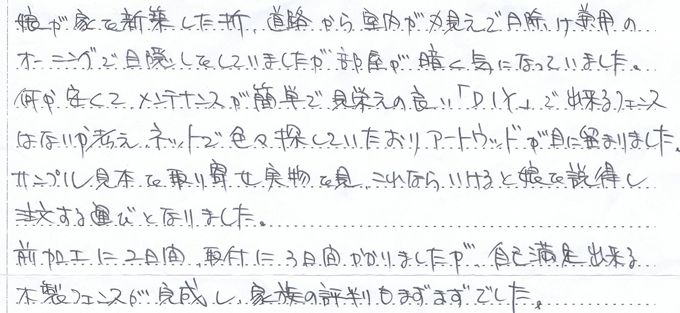 娘が家を新築した折、道路から室内が丸見えで日除け兼用の
オーニングで目隠しをしていましたが部屋が暗く気になっていました。
何か安くて、メンテナンスが簡単で見栄えの良い「D.I.Y.」で出来るフェンス
はないか考え、ネットで色々探していたおりアートウッドが目に留まりました。
サンプル見本を取り寄せ実物を見、これならいけると娘を説得し
注文する運びとなりました。
前加工に2日間、取付に3日間かかりましたが、自己満足出来る
木製フェンスが完成し、家族の評判もまずまずでした。